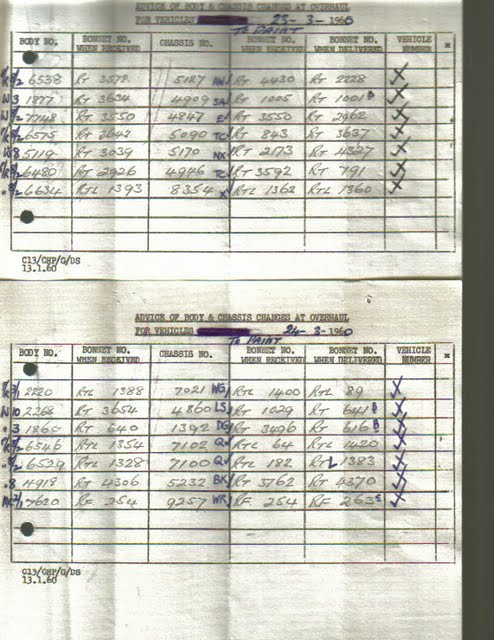 ADVICE OF BODY & CHASSIS CHANGES AT OVERHAUL
FOR VEHICLES 23-3-1960
TO PAINT
BODY NO. BONNET NO. WHEN RECEIVED CHASSIS NO. BONNET NO. WHEN RECEIVED BONNET NO. WHEN DELIVERED VEHICLE NUMBER
6538 RT 3578 5187 RT 4430 RT 2228
3 1877 RT 3634 4909 SA RT 1005 RT 1001 B
RT 3550 4847 RT 3550 RT 2962
6575 RT 5090 TC RT 843 RT 3637
8 5119 RT 3039 5170 NX RT 2173 RT
6480 RT 2926 4946 TC RT 3592 RT 791
6634 RTL 1393 8354 X RTL 1362 RTL 1360
C13/CHP/G/DS
13.1.60
ADVICE OF BODY & CHASSIS CHANGES AT OVERHAUL
FOR VEHICLES 24-3-1960
TO PAINT
BODY NO. BONNET NO. WHEN RECEIVED CHASSIS NO. BONNET NO. WHEN RECEIVED BONNET NO. WHEN DELIVERED VEHICLE NUMBER
2220 RTL 1388 7021 WG RTL 1400 RTL 89
W 10 2268 RT 3654 4860 LS RT 1029 RT 641 B
3 1865 RT 640 1392 DG RT 3496 RT 616 B
6546 RTL 1354 7102 Q RTL 64 RTL 1420
6529 RTL 1328 7100 Q RTL 182 RTL 1383
8 4918 RT 4306 5232 BK RT 3762 RT 4370
7620 RF 254 9257 WR RF 254 RF 263 S
C13/CHP/G/DS
13.1.60